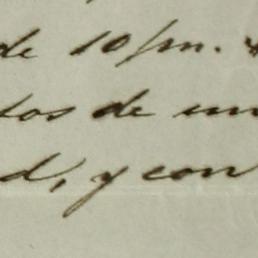 de 10 pm.
tos de un
d, y con